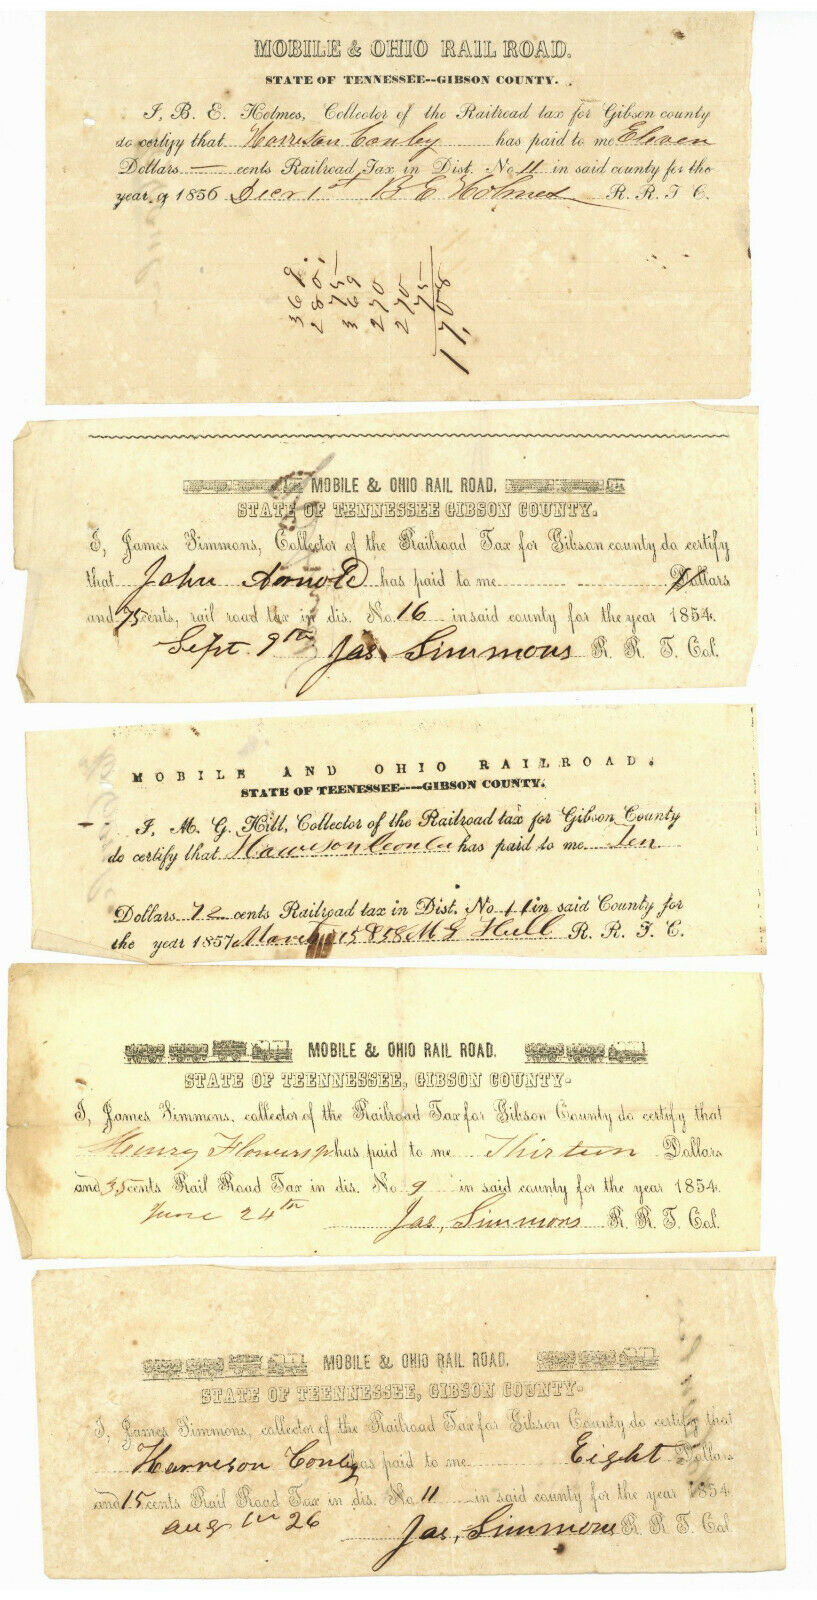 MOBILE & OHIO RAIL ROAD.
STATE OF TENNESSEE--GIBSON COUNTY.
I, B. E. Holmes, Collector of the Railroad tax for Gibson county
do certify that Harrison Conley has paid to me Eleven
Dollars — cents Railroad Tax in Dist. No 11 in said county for the
year of 1856 Decr 1st B E Holmes R. R. T C.
MOBILE & OHIO RAIL ROAD.
STATE OF TENNESSEE GIBSON COUNTY.
I, James Simmons, Collector of the Railroad Tax for Gibson county do certify
that John Arnold has paid to me Dollars
and 75 cents, rail road tax in dis. No. 16 in said county for the year 1854.
Sept. 9th Jas. Simmons R. R. T. Col.
MOBILE AND OHIO RAILROAD.
STATE OF TEENESSEE----GIBSON COUNTY.
I, M. G. Hill, Collector of the Railroad tax for Gibson County
do certify that has paid to me Ten
Dollars 72 cents Railroad tax in Dist. No 11 in said County for
the year 1857 March 15 1858 M G Hill R. R. T. C.
MOBILE & OHIO RAIL ROAD.
STATE OF TEENNESSEE, GIBSON COUNTY-
I, James Simmons, collector of the Railroad Tax for Gibson County do certify that
Henry Flowers has paid to me Thirteen Dollars
and 35 cents Rail Road Tax in dis. No 9 in said county for the year 1854.
June 24th Jas, Simmons R. R. T. Col.
MOBILE & OHIO RAIL ROAD.
STATE OF TEENNESSEE, GIBSON COUNTY-
I, James Simmons, collector of the Railroad Tax for Gibson County do certify that
Harrison Conley has paid to me Eight Dollars
and 15 cents Rail Road Tax in dis. No 11 in said county for the year 1854.
Aug 26 Jas, Simmons R. R. T. Col.